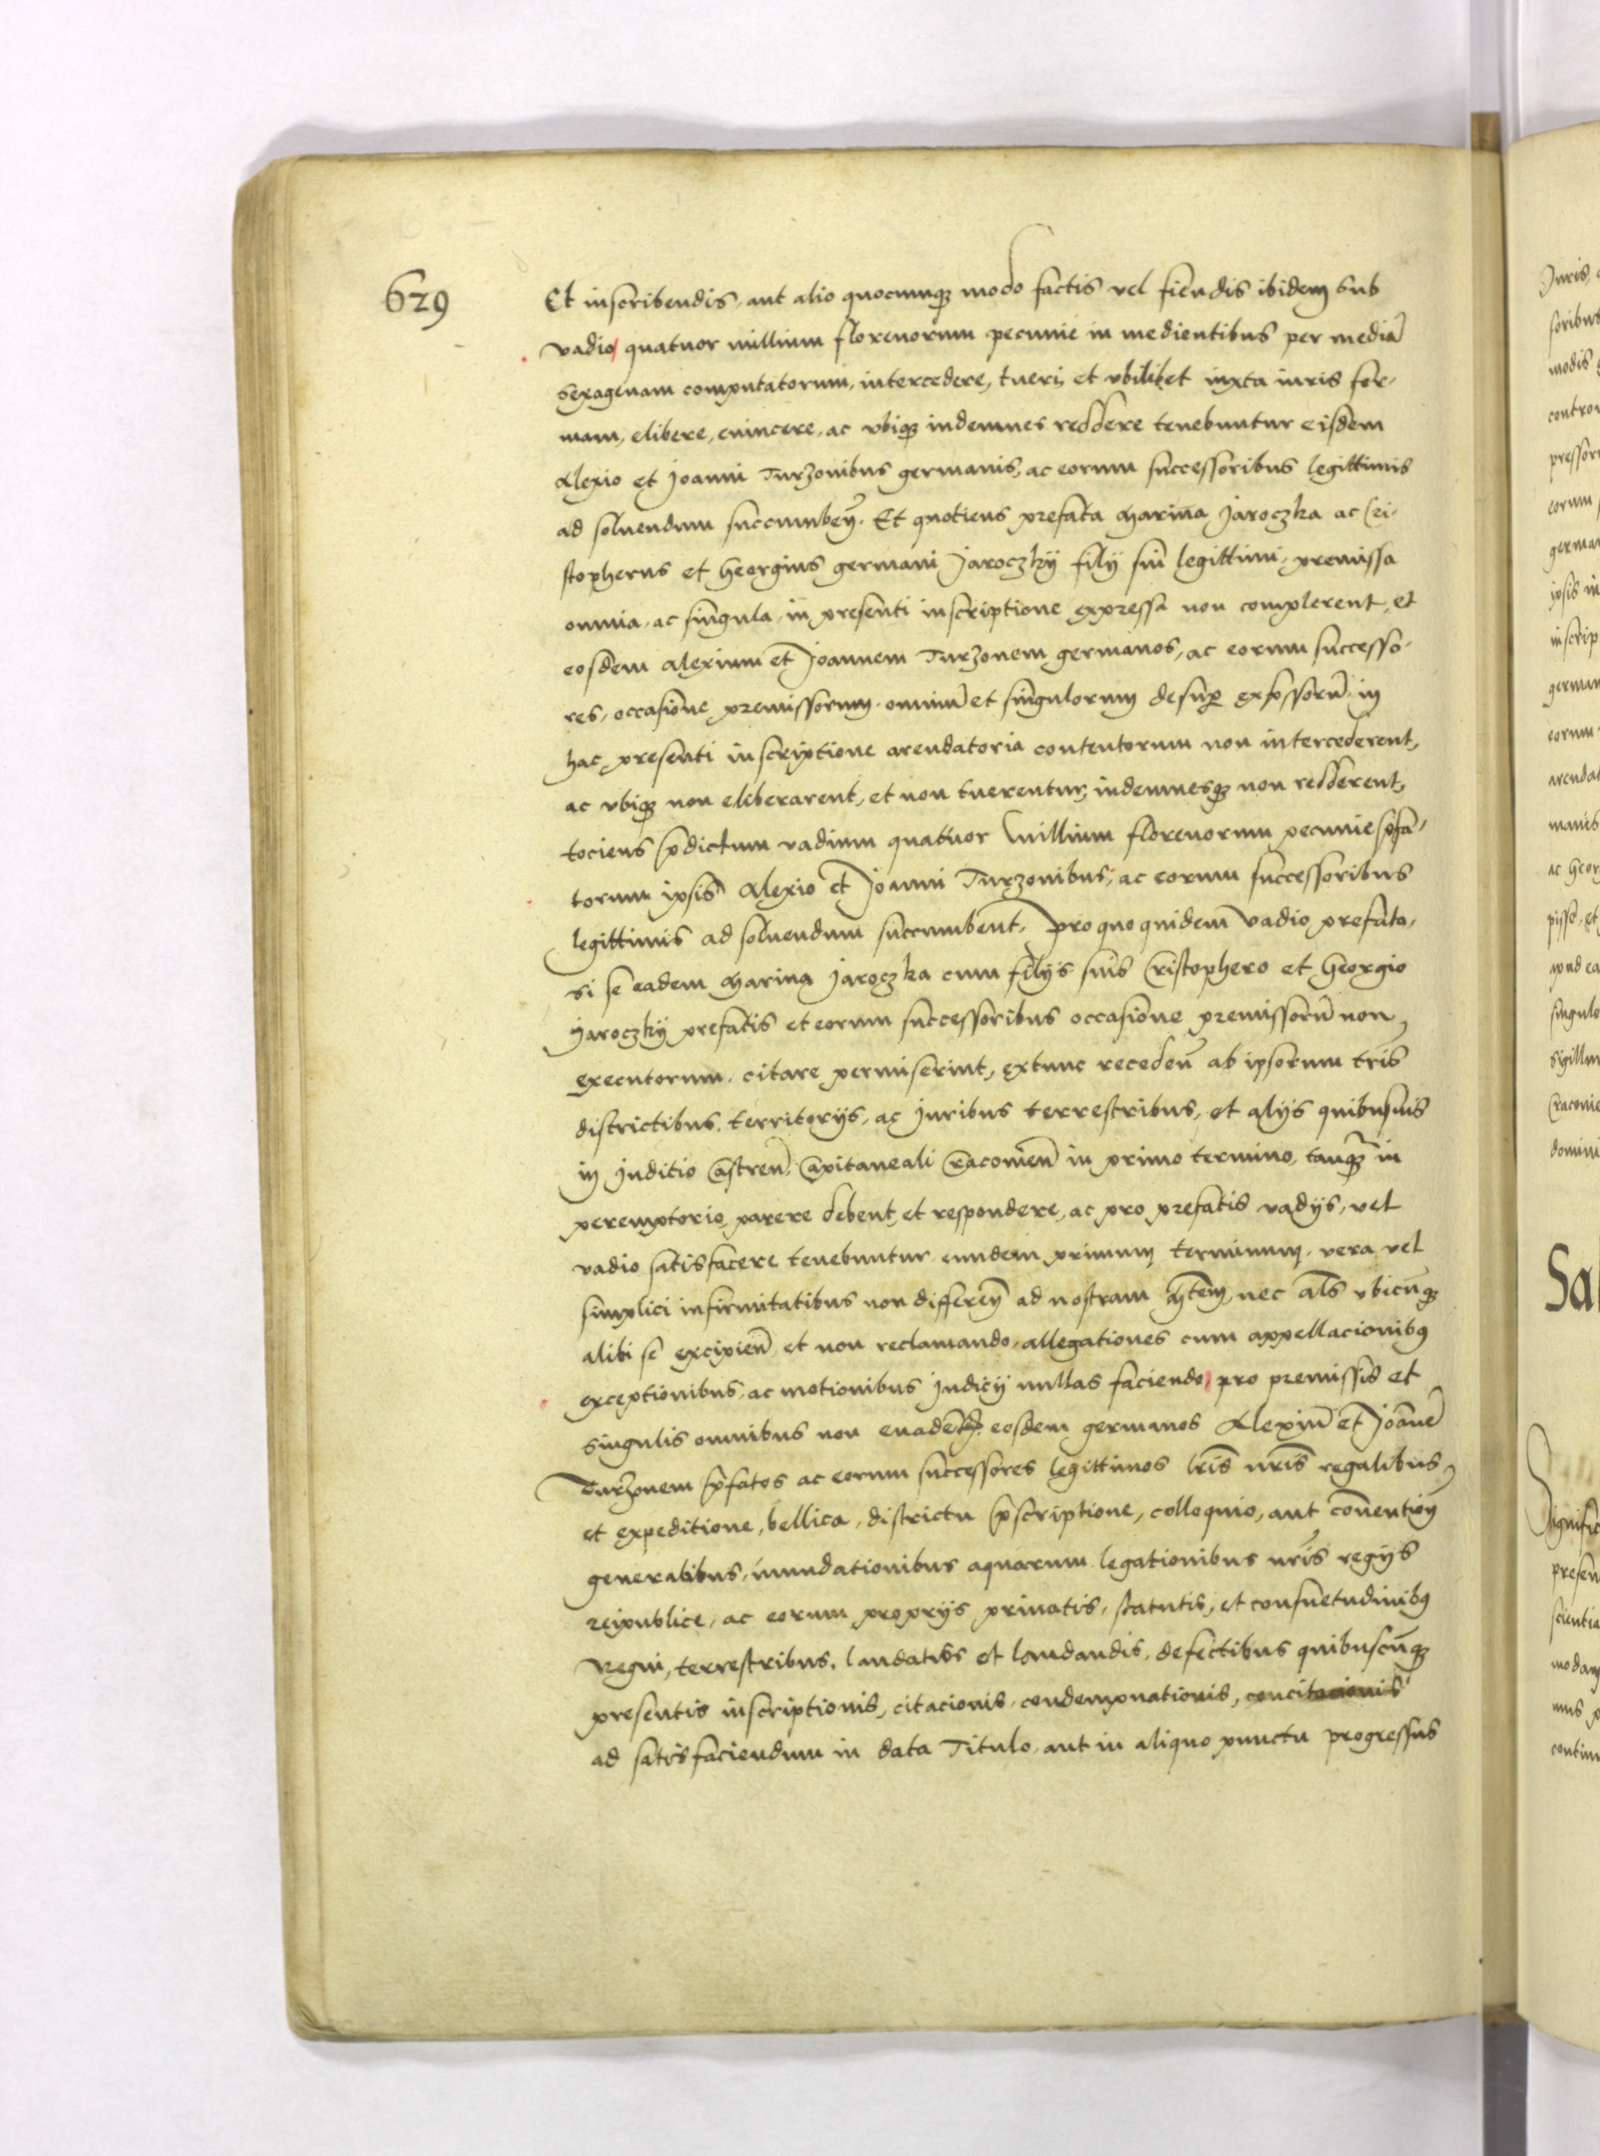 629
Et inscribendis, aut alio quocunqꝫ modo factis vel fiendis ibidem sub
vadio quatuor millium florenorum pecunie in medientibus per mediā
sexagenam computatorum, intercedere, tueri, et vbilibet iuxta iuris for-
mam, elibere, euincere, ac vbiqꝫ indemnes reddere tenebuntur eisdem
Alexio et Joanni Turzonibus germanis, ac eorum successoribus legittimis
ad soluendum succumbeñ. Et quotiens prefata Marina Jaroczka ac Cri-
stopherus et Georgius germani Jaroczkÿ filÿ sui legittimi, premissa
omnia, ac singula, in presenti inscriptione expressa non complerent, et
eosdem Alexium et Joannem Turzonem germanos, ac eorum successo-
res, occasione premissorum, omniū et singulorum desuꝑ exp̄ssorū in
hac presenti inscriptione arendatoria contentorum non intercederent,
ac vbiqꝫ non eliberarent, et non tuerentur, indemnesqꝫ non redderent,
tociens p̄dictum vadium quatuor Millium florenorum pecunie p̄fa-
torum ipsis Alexio et Joanni Turzonibus, ac eorum successoribus
legittimis ad soluendum succumbent, pro quo quidem vadio prefato,
si se eadem Marina Jaroczka cum filÿs suis Cristophero et Georgio
Jaroczkÿ prefatis et eorum successoribus occasione premissorū non
executorum, citare permiserint, extunc recedeñ ab ipsorum tr̄is
districtibus, territorÿs, ac Juribus terrestribus, et alÿs quibusuis
in Juditio Castreñ, Capitaneali Cracouieñ in primo termino, tanqꝫ in
peremptorio, parere debent et respondere, ac pro prefatis vadÿs, vel
vadio satisfacere tenebuntur, eundem primum terminum, vera vel
simplici infirmitatibus non differeñ ad nostram Mtem, nec al̄s vbicūqꝫ
alibi se excipieñ et non reclamando, allegationes cum appellacionibꝰ
exceptionibus, ac motionibus Judicÿ nullas faciendo, pro premissis et
singulis omnibus non euadentqꝫ eosdem germanos Alexiū et Joannē
Turzonem p̄fatos ac eorum successores legittimos l̄ris n̄ris regalibus,
et expeditione, bellica, districtu p̄scriptione, colloquio, aut conuentioñ
generalibus, inundationibus aquarum, legationibus n̄ris regÿs
reipublice, ac eorum proprÿs priuatis, statutis, et consuetudinibꝰ
Regni, terrestribus, laudatis et laudandis, defectibus quibuscūqꝫ
presentis inscriptionis, citacionis, condempnationis, concitacionis
ad satisfaciendum in data Titulo, aut in aliquo punctu progressus